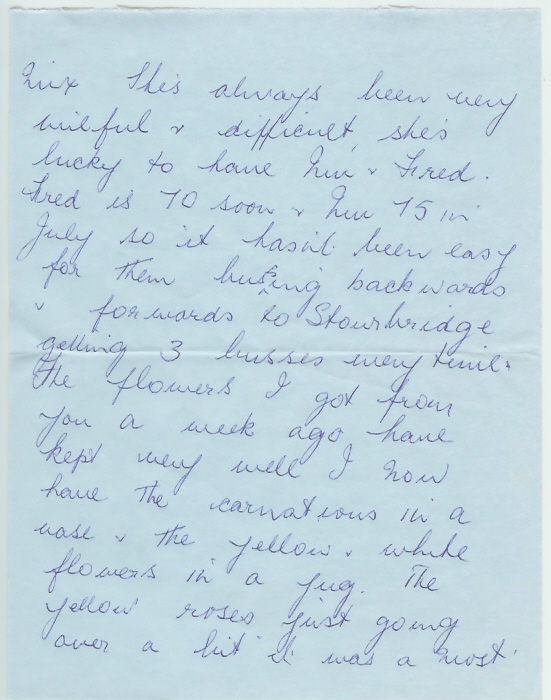 She's always been very
wilful & difficult, she's
lucky to have Win & Fred.
Fred is 70 soon & Win 75 in
July so it hasn't been easy
for them bussing backwards
& forwards to Stourbridge
getting 3 busses every time.
The flowers I got from
you a week ago have
kept very well I now
have the carnations in a
vase & the yellow & white
flowers in a jug. The
yellow roses just going
over a bit it was a most